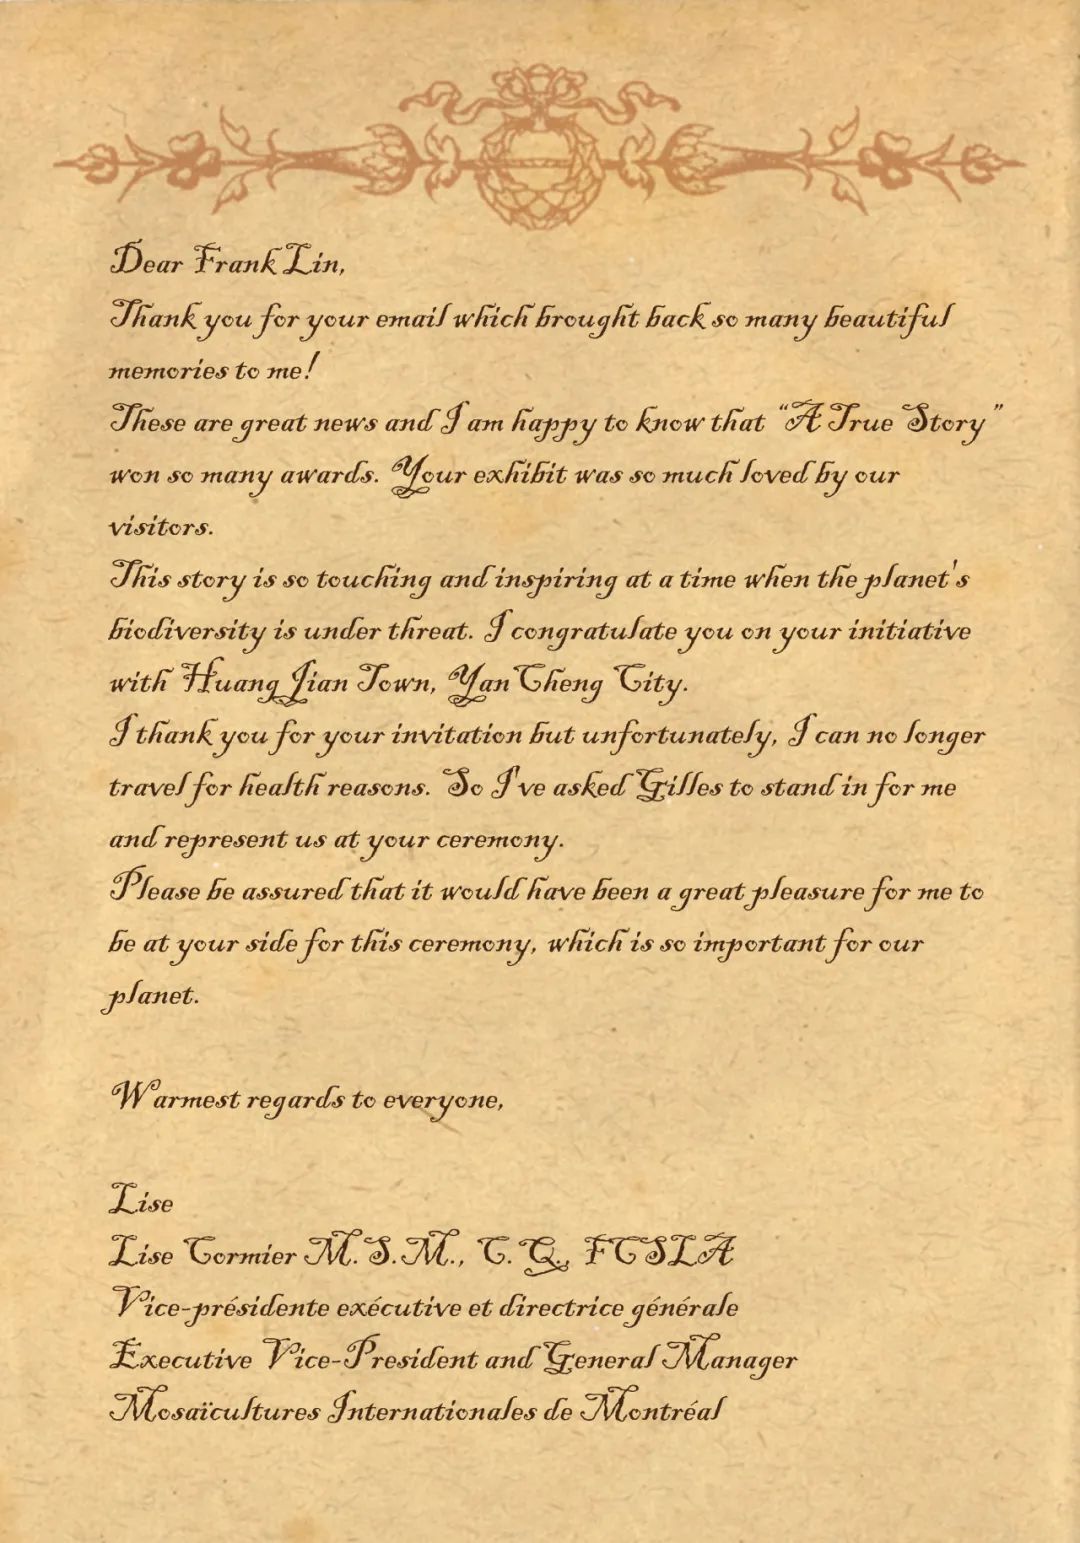 Dear Frank Lin,
Thank you for your email which brought back so many beautiful
memories to me!
These are great news and I am happy to know that “A True Story”
won so many awards. Your exhibit was so much loved by our
visitors.
This story is so touching and inspiring at a time when the planet's
biodiversity is under threat. I congratulate you on your initiative
with Huang Jian Town, Yan Cheng City.
I thank you for your invitation but unfortunately, I can no longer
travel for health reasons. So I've asked Gilles to stand in for me
and represent us at your ceremony.
Please be assured that it would have been a great pleasure for me to
be at your side for this ceremony, which is so important for our
planet.
Warmest regards to everyone,
Lise
Lise Cormier M.S.M., C.Q., FCSLA
Vice-présidente exécutive et directrice générale
Executive Vice-President and General Manager
Mosaïcultures Internationales de Montréal